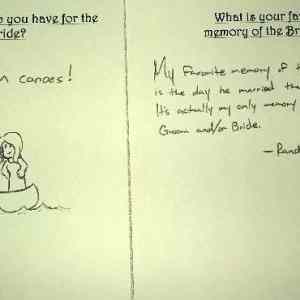 you have for the
ride?
canoes!
What is your fa
memory of the Br
My Favorite memory of
is the day he married tha
It's actually my only memory
Groom and/or Bride.
- Rand